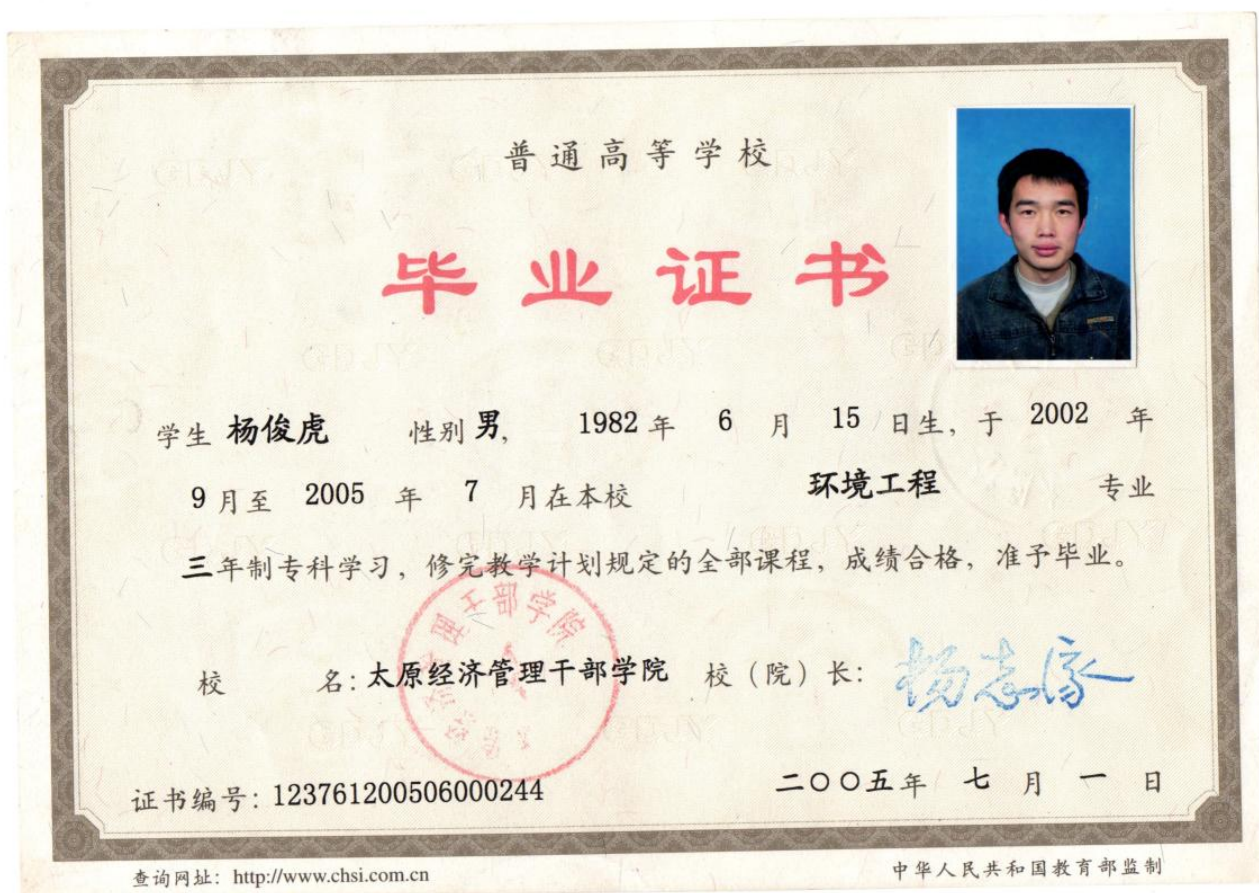 普通高等学校
毕业证书
学生 杨俊虎 性别 男, 1982 年 6 月 15 日生, 于 2002 年
9 月至 2005 年 7 月在本校 环境工程 专业
三年制专科学习, 修完教学计划规定的全部课程, 成绩合格, 准予毕业。
校 名: 太原经济管理干部学院 校 (院) 长:
证书编号: 123761200506000244 二〇〇五年 七 月 一 日
查询网址: http://www.chsi.com.cn 中华人民共和国教育部监制